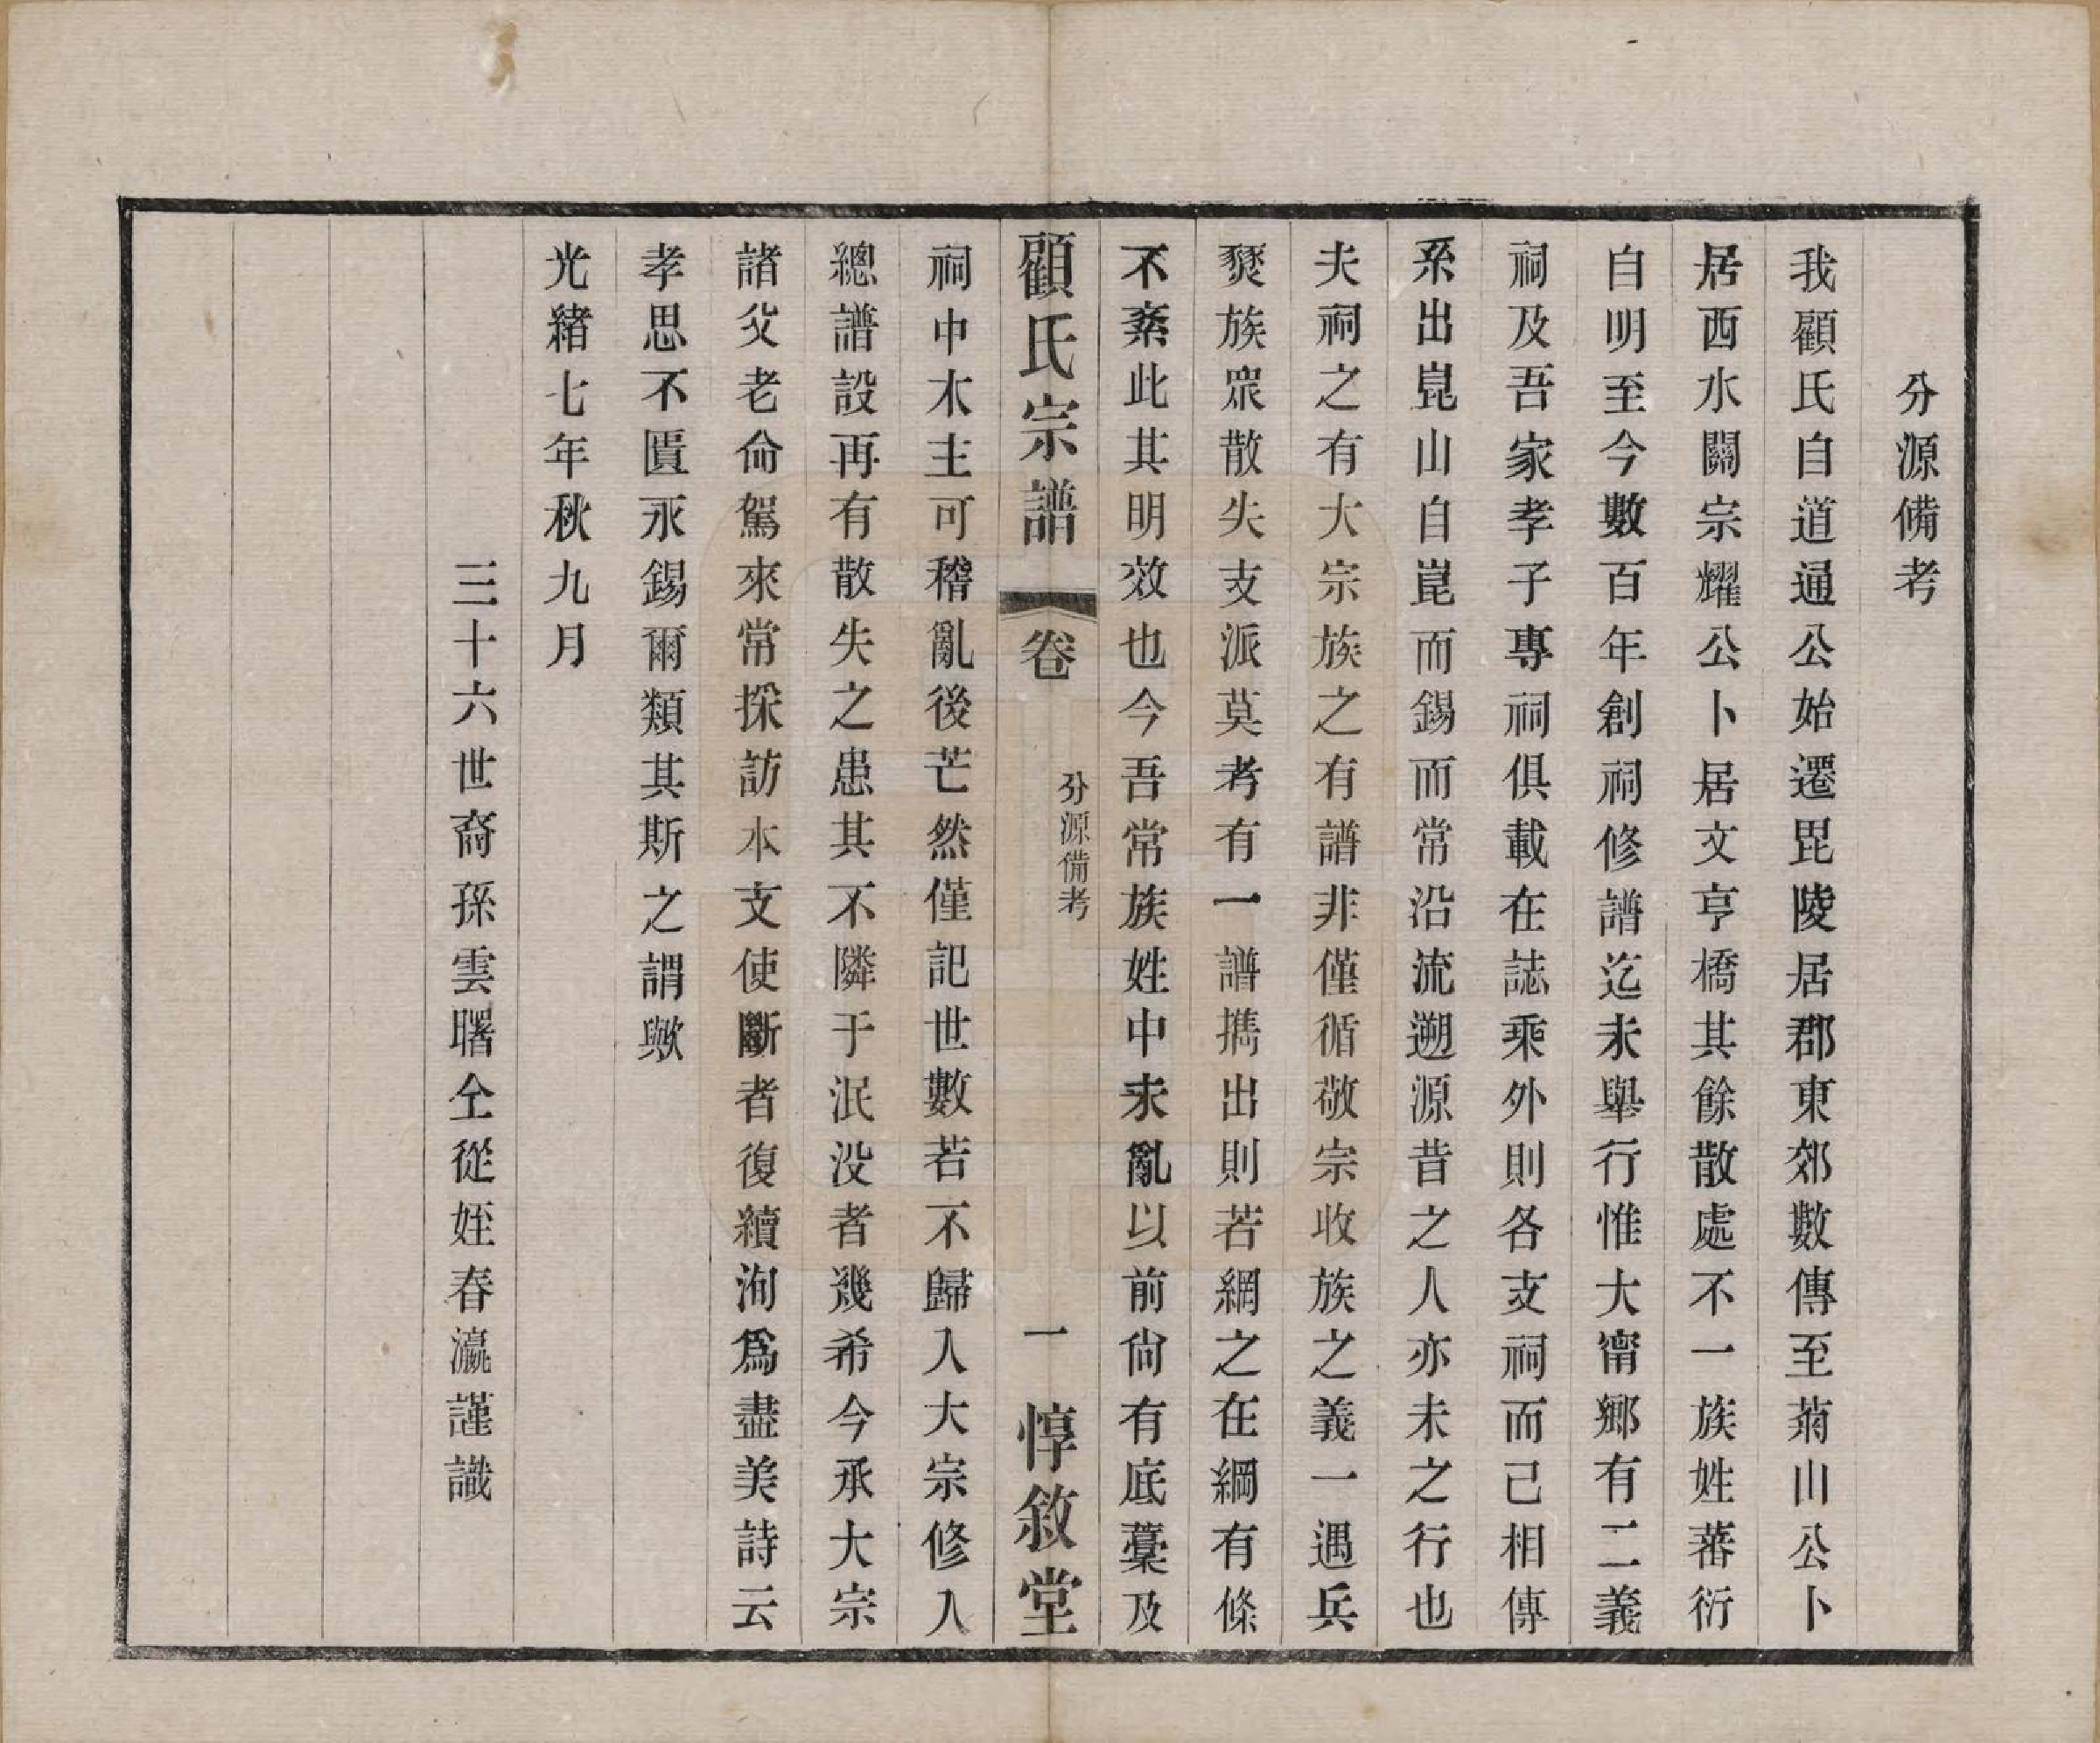 分源備考
我顧氏自道通公始遷毘陵居郡東郊數傳至菊山公卜
居西水關宗耀公卜居文亨橋其餘散處不一族姓蕃衍
自明至今數百年創祠修譜迄未舉行惟大甯鄉有二義
祠及吾家孝子專祠俱載在誌乘外則各支祠而己相傳
系出崑山自崑而錫而常沿流遡源昔之人亦未之行也
夫祠之有大宗族之有譜非僅循敬宗收族之義一遇兵
燹族眾散失支派莫考有一譜擕出則若網之在綱有條
不紊此其明效也今吾常族姓中未亂以前尙有底藁及
顧氏宗譜 卷 分源備考 一 惇敘堂
祠中木主可稽亂後芒然僅記世數若不歸入大宗修入
總譜設再有散失之患其不隣于泯没者幾希今承大宗
諸父老命駕來常採訪本支使斷者復續洵爲盡美詩云
孝思不匱永錫爾類其斯之謂歟
光緒七年秋九月
三十六世裔孫雲曙仝從姪春瀛謹識